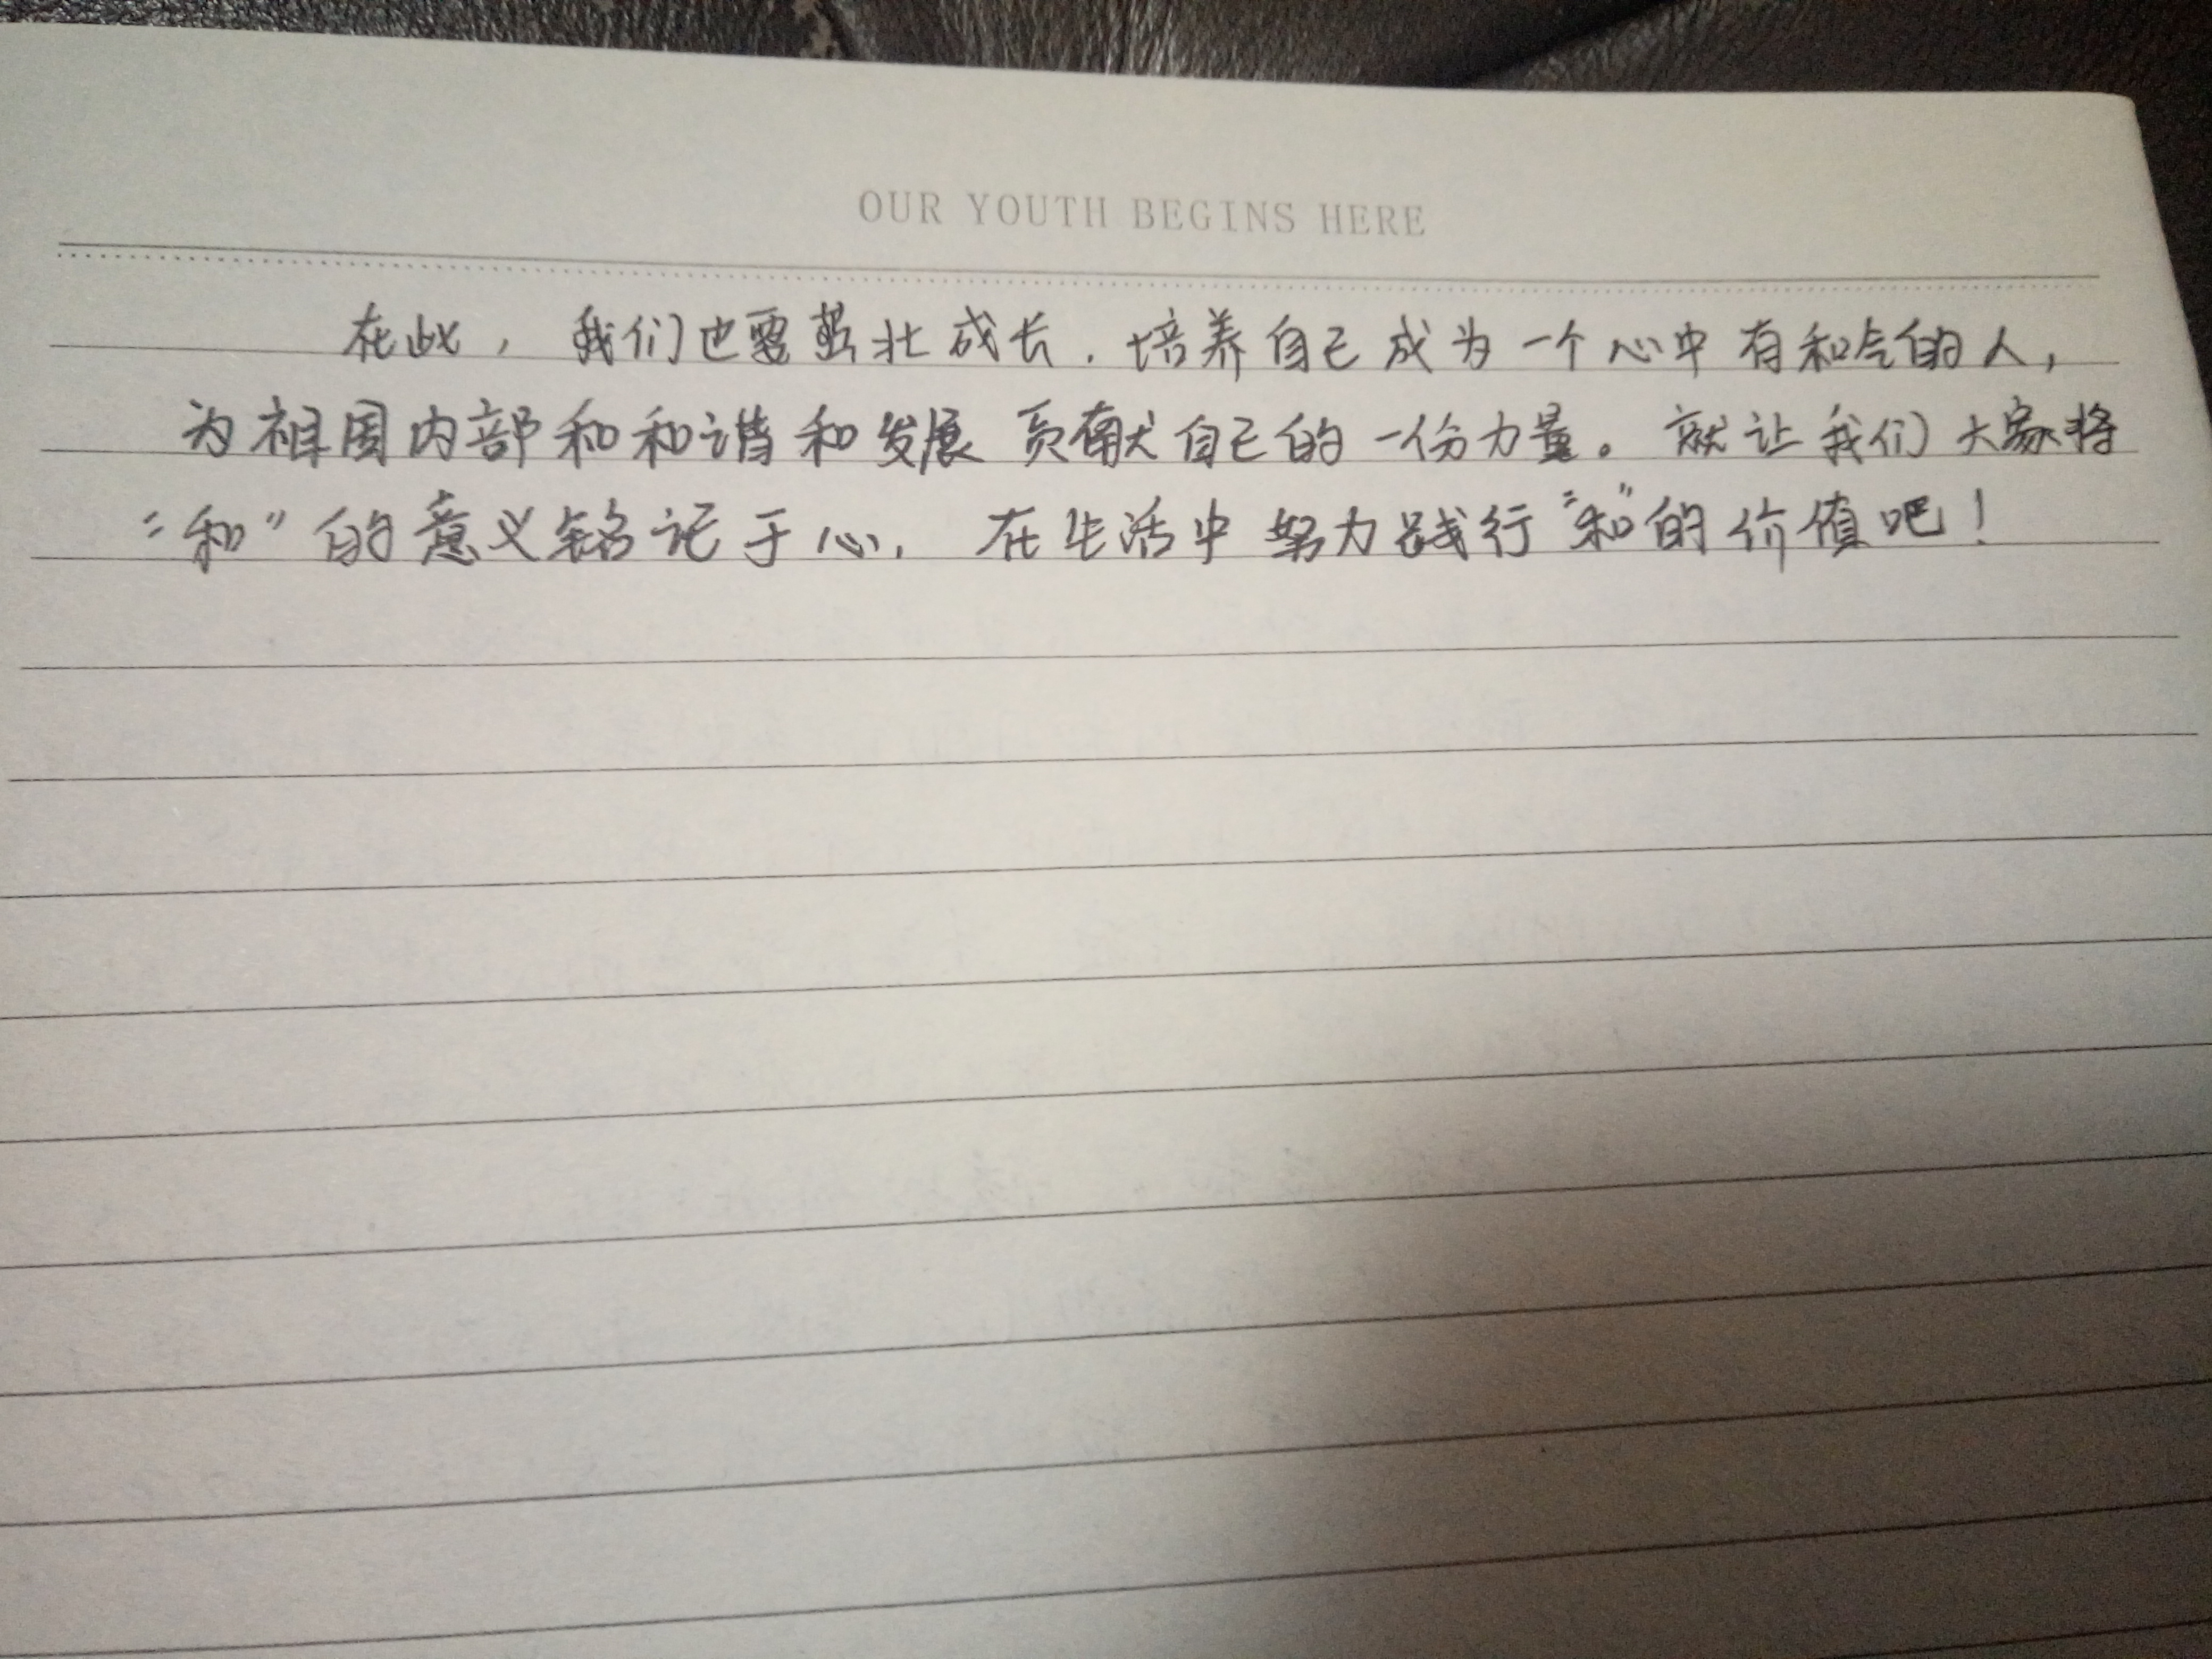 OUR YOUTH BEGINS HERE
在此，我们也需茁壮成长，培养自己成为一个心中有和气的人，
为祖国内部和和谐和发展贡献自己的一份力量。就让我们大家将
“和”的意义铭记于心，在生活中努力践行“和”的价值吧！